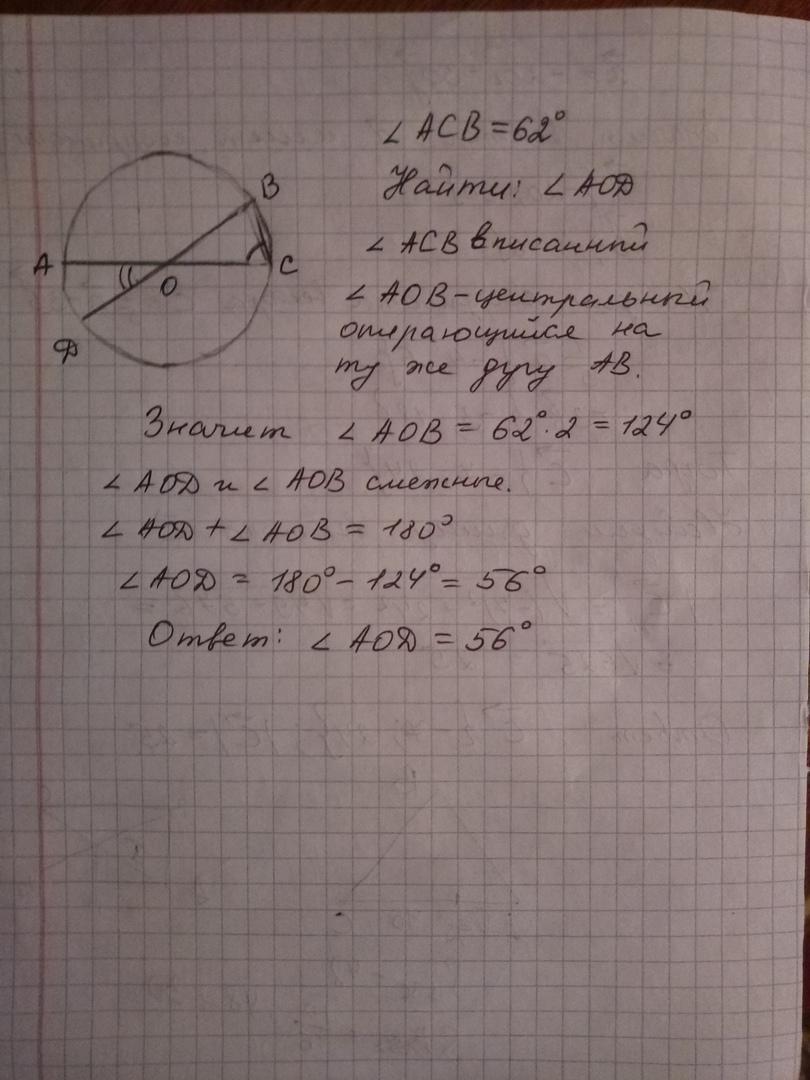 ∠ ACB = 62°
Найти: ∠ AOD
∠ ACB вписанный
∠ AOB - центральный
опирающийся на
ту же дугу AB.
B
A
O
C
D
Значит ∠ AOB = 62°·2 = 124°
∠ AOD и ∠ AOB смежные.
∠ AOD + ∠ AOB = 180°
∠ AOD = 180° - 124° = 56°
Ответ: ∠ AOD = 56°